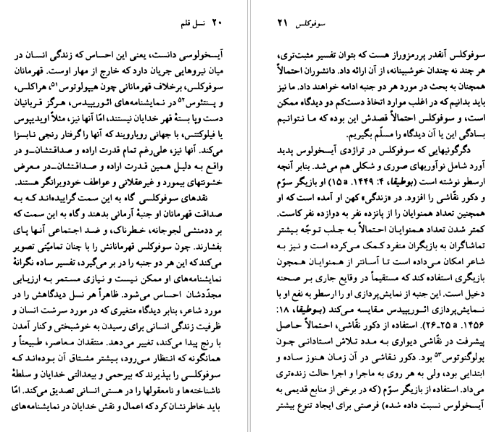 ۲۰ نسل قلم
آیسخولوسی دانست، یعنی این احساس که زندگی انسان در
میان نیروهایی جریان دارد که خارج از مهار اوست. قهرمانان
سوفوکلس، برخلاف قهرمانانی چون هیپولوتوس۵۱، هراکلس،
و پنتئوس۵۲ در نمایشنامه‌های ائوریپیدس، هرگز قربانیان
دست وپا بستهٔ قهر خدایان نیستند، امّا آنها نیز، مثلاً اویدیپوس
یا فیلوکتتس، با جهانی رویارویند که آنها را گرفتار رنجی نابسزا
می‌کند. آنها نیز، علی‌رغم تمام قدرت اراده و صداقتشان-و در
واقع به دلیل همین قدرت اراده و صداقتشان-در معرض
خشونتهای بیمورد و غیرعقلانی و عواطف خودویرانگر هستند.
نقدهای سوفوکلسی گاه به این سمت گراییده‌اند که به
صداقت قهرمانان او جنبهٔ آرمانی بدهند و گاه به این سمت که
بر ددمنشی لجوجانه، خطرناک، و ضد اجتماعی آنها پای
بفشارند. چون سوفوکلس قهرمانانش را با چنان تمامیّتی تصویر
می‌کند که این هر دو جنبه را در بر می‌گیرد، تفسیر ساده نگرانهٔ
نمایشنامه‌های او ممکن نیست و نیازی مستمر به ارزیابی
مجدّدشان احساس می‌شود. ظاهراً هر نسل دیدگاهش را در
مورد شاعر، بنابر دیدگاه متغیری که در مورد سرشت انسان و
ظرفیت زندگی انسانی برای رسیدن به خوشبختی و کنار آمدن
با رنج پیدا می‌کند، تغییر می‌دهد. منتقدان معاصر، طبیعتاً و
همانگونه که انتظار می‌رود، بیشتر مشتاق آن بوده‌اند که
سوفوکلسی را بپذیرند که بیرحمی و بیعدالتی خدایان و سلطهٔ
ناشناخته‌ها و نامعقولها را در هستی انسانی تصدیق می‌کند. امّا
باید خاطرنشان کرد که اعمال و نقش خدایان در نمایشنامه‌های
سوفوکلس ۲۱
سوفوکلس آنقدر پررمزوراز هست که بتوان تفسیر مثبت‌تری،
هر چند نه چندان خوشبینانه، از آن ارائه داد. دانشوران احتمالاً
همچنان به بحث در مورد هر دو جنبه ادامه خواهند داد. ما نیز
باید بدانیم که در اغلب موارد اتخاذ دست‌کم دو دیدگاه ممکن
است، و سوفوکلس احتمالاً قصدش این بوده که ما نتوانیم
بسادگی این یا آن دیدگاه را مسلّم فرض کنیم.
دگرگونیهایی که سوفوکلس در تراژدی آیسخولوس پدید
آورد شامل نوآوریهای صوری و شکلی هم می‌شد. بنابر آنچه
ارسطو نوشته است (بوطیقا، ۴: ۱۴۴۹ a ۱۵) او بازیگر سوّم
و دکور نقاشی را افزود. در «زندگی» کهن او آمده است که او
همچنین تعداد همنوایان را از پانزده نفر به دوازده نفر کاست.
کمتر شدن تعداد همنوایان احتمالاً به جلب توجّه بیشتر
تماشاگران به بازیگران منفرد کمک می‌کرده است و نیز به
شاعر امکان می‌داده است تا آسانتر از همنوایان همچون
بازیگری استفاده کند که مستقیماً در وقایع جاری بر صحنه
دخیل است. این جنبه از نمایش‌پردازی او را ارسطو به نفع او با
نمایش‌پردازی ائوریپیدس مقایسه می‌کند (بوطیقا، ۱۸:
۱۴۵۶ a ۲۵-۲۶). استفاده از دکور نقّاشی، احتمالاً حاصل
پیشرفت در نقّاشی دیواری به مدد تلاش استادانی چون
پولوگنوتوس۵۳ بود. دکور نقاشی در آن زمان هنوز ساده و
ابتدایی بود، ولی به هر روی به ماجرا و اجرا حالت زنده‌تری
می‌داد. استفاده از بازیگر سوّم (که در برخی از منابع قدیمی به
آیسخولوس نسبت داده شده) فرصتی برای ایجاد تنوع بیشتر